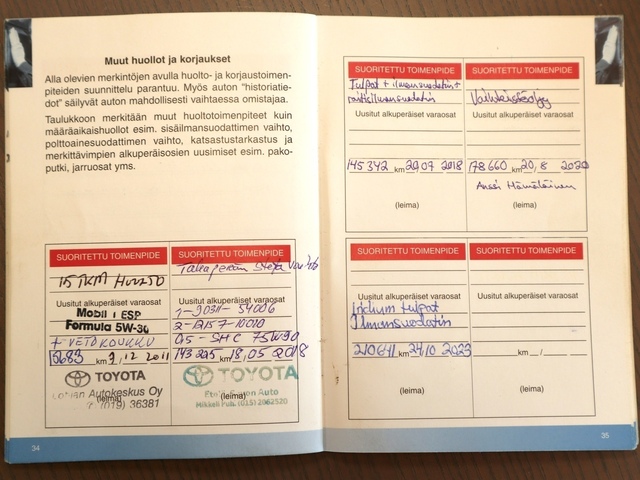 Muut huollot ja korjaukset
Alla olevien merkintöjen avulla huolto- ja korjaustoimen-
piteiden suunnittelu parantuu. Myös auton "historiatie-
dot" säilyvät auton mahdollisesti vaihtaessa omistajaa.
Taulukkoon merkitään muut huoltotoimenpiteet kuin
määräaikaishuollot esim. sisäilmansuodattimen vaihto,
polttoainesuodattimen vaihto, katsastustarkastus ja
merkittävimpien alkuperäisosien uusimiset esim. pako-
putki, jarruosat yms.
SUORITETTU TOIMENPIDE
15 TKM HUOLTO
Uusitut alkuperäiset varaosat
Mobil 1 ESP
Formula 5W-30
+ VETOKOUKKU
km 9.12 2011
TOYOTA
Autokeskus Oy
(leima)
(019) 36381
SUORITETTU TOIMENPIDE
Takaperän
Uusitut alkuperäiset varaosat
1-90311-54006
2-12157-10010
75W90
143 225 km 18.05 2018
TOYOTA
Auto
(leima)
Mikkeli Puh. (015) 2062520
34
SUORITETTU TOIMENPIDE
Tulpat + ilmansuodatin+
raitisilmansuodatin
Uusitut alkuperäiset varaosat
145342 km 20.07 2018
(leima)
SUORITETTU TOIMENPIDE
Vaihteistoöljy
Uusitut alkuperäiset varaosat
178660 km 20.8 2020
Anssi Hämäläinen
(leima)
SUORITETTU TOIMENPIDE
Uusitut alkuperäiset varaosat
Iridium tulpat
Ilmansuodatin
210641 km 24.10 2023
(leima)
SUORITETTU TOIMENPIDE
Uusitut alkuperäiset varaosat
km / /
(leima)
35